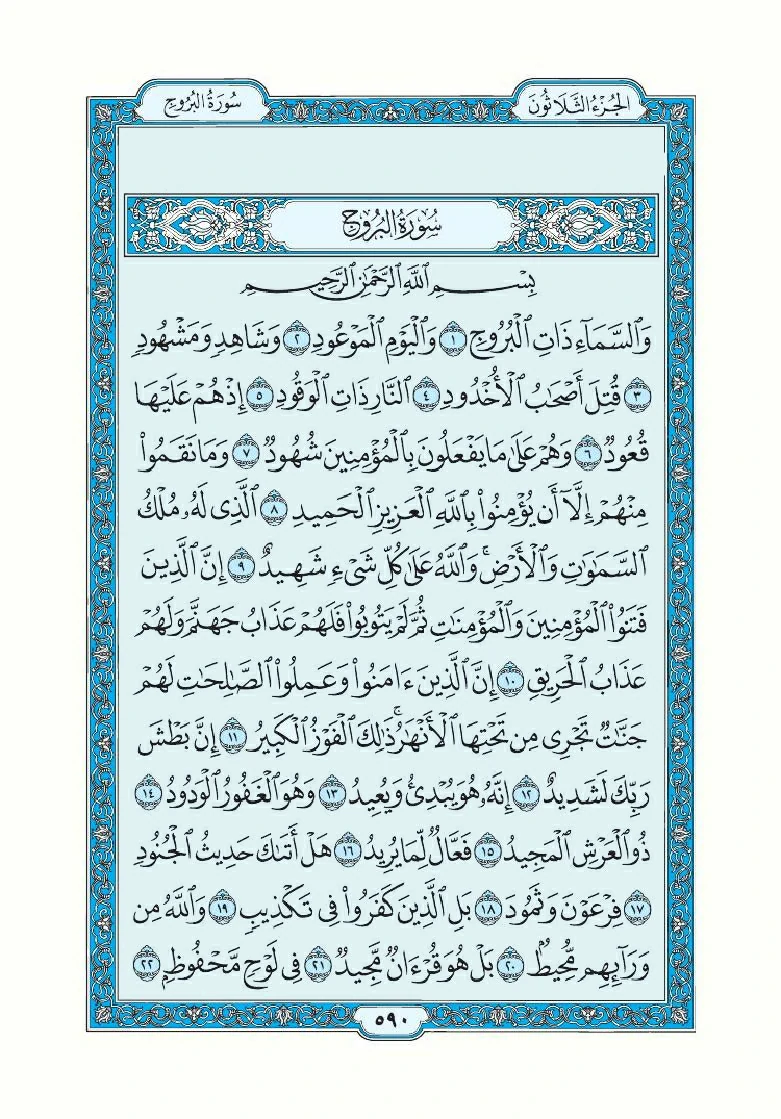 الجُزْءُ الثَّلَاثُونَ
سُورَةُ البُرُوجِ
سُورَةُ البُرُوجِ
بِسْمِ ٱللَّهِ ٱلرَّحْمَٰنِ ٱلرَّحِيمِ
وَٱلسَّمَآءِ ذَاتِ ٱلْبُرُوجِ ١ وَٱلْيَوْمِ ٱلْمَوْعُودِ ٢ وَشَاهِدٍ وَمَشْهُودٍ
٣ قُتِلَ أَصْحَٰبُ ٱلْأُخْدُودِ ٤ ٱلنَّارِ ذَاتِ ٱلْوَقُودِ ٥ إِذْ هُمْ عَلَيْهَا
قُعُودٌ ٦ وَهُمْ عَلَىٰ مَا يَفْعَلُونَ بِٱلْمُؤْمِنِينَ شُهُودٌ ٧ وَمَا نَقَمُوا۟
مِنْهُمْ إِلَّآ أَن يُؤْمِنُوا۟ بِٱللَّهِ ٱلْعَزِيزِ ٱلْحَمِيدِ ٨ ٱلَّذِى لَهُۥ مُلْكُ
ٱلسَّمَٰوَٰتِ وَٱلْأَرْضِ ۚ وَٱللَّهُ عَلَىٰ كُلِّ شَىْءٍ شَهِيدٌ ٩ إِنَّ ٱلَّذِينَ
فَتَنُوا۟ ٱلْمُؤْمِنِينَ وَٱلْمُؤْمِنَٰتِ ثُمَّ لَمْ يَتُوبُوا۟ فَلَهُمْ عَذَابُ جَهَنَّمَ وَلَهُمْ
عَذَابُ ٱلْحَرِيقِ ١٠ إِنَّ ٱلَّذِينَ ءَامَنُوا۟ وَعَمِلُوا۟ ٱلصَّٰلِحَٰتِ لَهُمْ
جَنَّٰتٌ تَجْرِى مِن تَحْتِهَا ٱلْأَنْهَٰرُ ۚ ذَٰلِكَ ٱلْفَوْزُ ٱلْكَبِيرُ ١١ إِنَّ بَطْشَ
رَبِّكَ لَشَدِيدٌ ١٢ إِنَّهُۥ هُوَ يُبْدِئُ وَيُعِيدُ ١٣ وَهُوَ ٱلْغَفُورُ ٱلْوَدُودُ ١٤
ذُو ٱلْعَرْشِ ٱلْمَجِيدُ ١٥ فَعَّالٌ لِّمَا يُرِيدُ ١٦ هَلْ أَتَىٰكَ حَدِيثُ ٱلْجُنُودِ
١٧ فِرْعَوْنَ وَثَمُودَ ١٨ بَلِ ٱلَّذِينَ كَفَرُوا۟ فِى تَكْذِيبٍ ١٩ وَٱللَّهُ مِن
وَرَآئِهِم مُّحِيطٌۢ ٢٠ بَلْ هُوَ قُرْءَانٌ مَّجِيدٌ ٢١ فِى لَوْحٍ مَّحْفُوظٍۭ ٢٢
٥٩٠